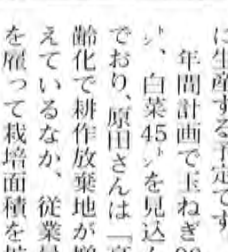 に生産する予定です
年間計画で玉ねぎ
㌧、白菜45㌧を見込
でおり、原田さんは「高
齢化で耕作放棄地が増
えているなか、従業員
を雇って栽培面積を拡